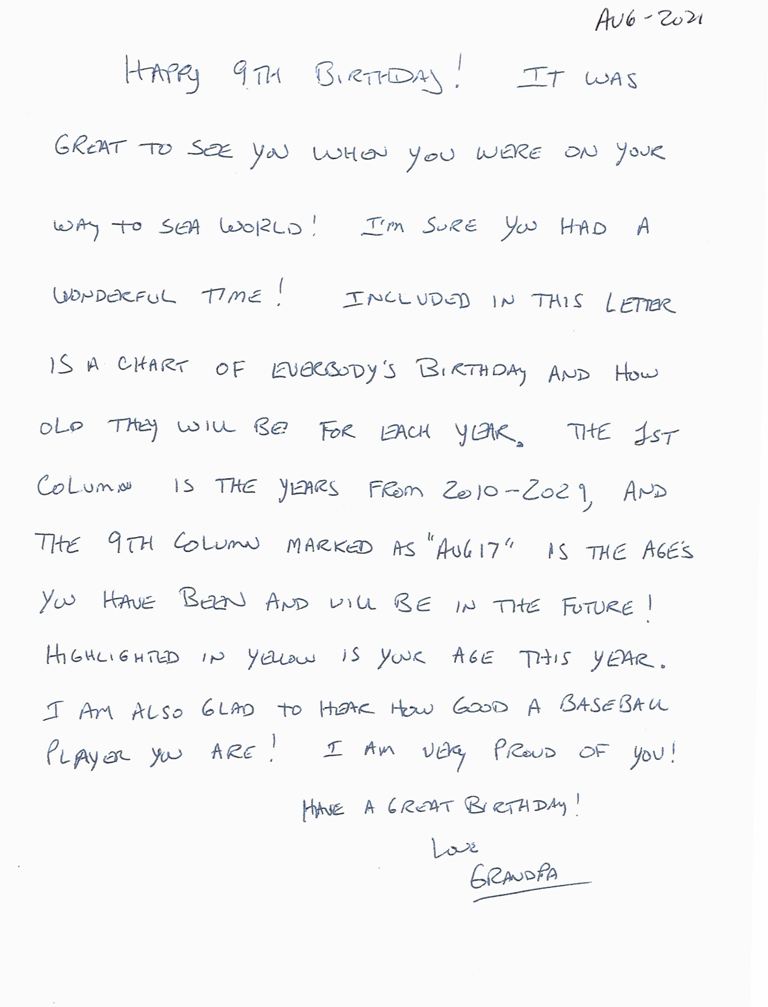 AUG-2021
HAPPY 9TH BIRTHDAY! IT WAS
GREAT TO SEE YOU WHEN YOU WERE ON YOUR
WAY TO SEA WORLD! I'M SURE YOU HAD A
WONDERFUL TIME! INCLUDED IN THIS LETTER
IS A CHART OF EVERBODY'S BIRTHDAY AND HOW
OLD THEY WILL BE FOR EACH YEAR. THE 1ST
COLUMN IS THE YEARS FROM 2010-2029, AND
THE 9TH COLUMN MARKED AS "AUG 17" IS THE AGE'S
YOU HAVE BEEN AND WILL BE IN THE FUTURE!
HIGHLIGHTED IN YELLOW IS YOUR AGE THIS YEAR.
I AM ALSO GLAD TO HEAR HOW GOOD A BASEBALL
PLAYER YOU ARE! I AM VERY PROUD OF YOU!
HAVE A GREAT BIRTHDAY!
LOVE
GRANDPA